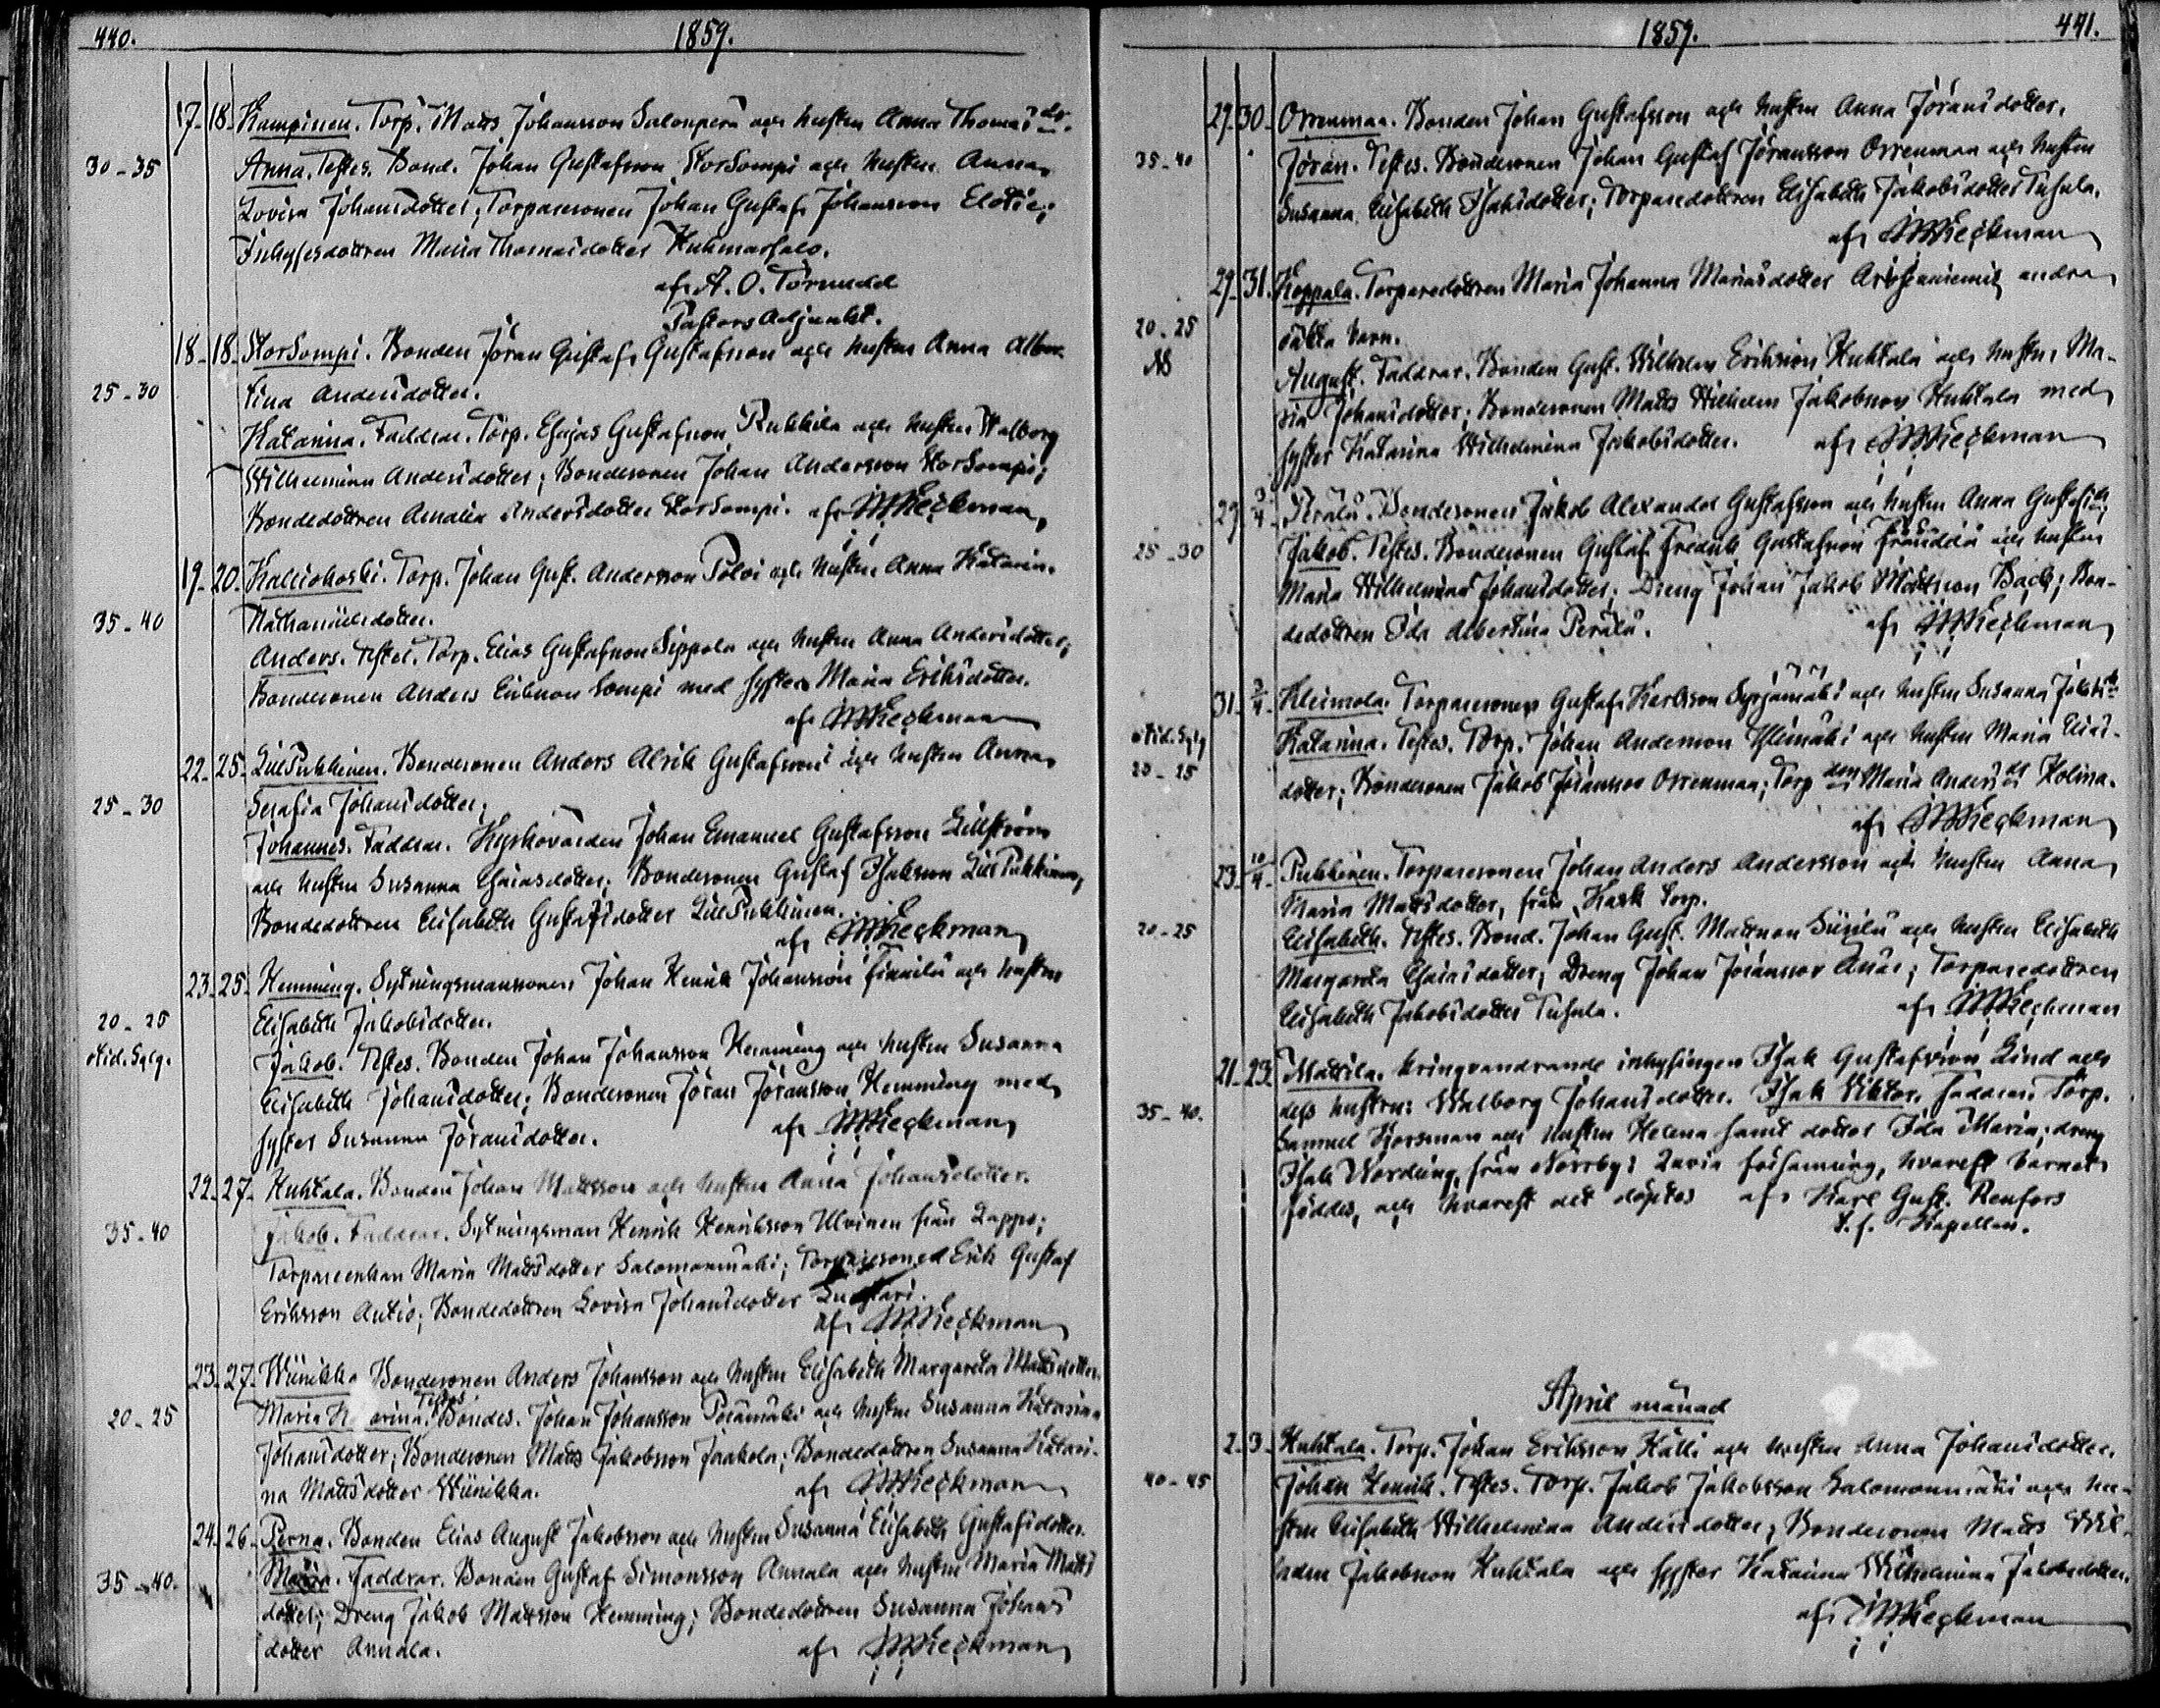 440.
1859.
17-18- Kampinen. Torp. Matts Johansson Salonperä och hustrun Anna Thomas dr.
30-35 Anna. Testes. Bond. Johan Gustafsson StorSompi och hustrun Anna
Lovisa Johansdotter; Torparesonen Johan Gustaf Johansson
Inhysesdottren Maria Thomasdotter Kuhmarsalo.
af A. O. Törnudd
Pastors Adjunkt.
18-18- StorSompi. Bonden Jöran Gustaf Gustafsson och hustrun Anna Alber-
25-30 tina Andersdotter.
Katarina. Faddrar. Torp. Esajas Gustafsson Rukkila och hustrun Walborg
Wilhelmina Andersdotter; Bondesonen Johan Andersson StorSompi;
Bondedottren Amalia Andersdotter StorSompi. af Wieckman
19-20- Kaliokoski. Torp. Johan Gust. Andersson och hustrun Anna Katarin.
35-40 Nathanaelsdotter.
Anders. Testes. Torp. Elias Gustafsson Sippola och hustrun Anna Andersdotter;
Bondesonen Anders Eriksson Sompi med syster Maria Eriksdotter.
af Wieckman
22-25- LillPukkinen. Bondesonen Anders Alrik Gustafsson och hustrun Anna
25-30 Serafia Johansdotter;
Johannes. Faddrar. Kyrkovärden Johan Emanuel Gustafsson Lillström
och hustrun Susanna Esaiasdotter; Bondesonen Gustaf Isaksson LillPukkinen,
Bondedottren Elisabeth Gustafsdotter LillPukkinen.
af Wieckman
23-25- Hemming. Sytningsmanssonen Johan Henrik Johansson Finnilä och hustrun
20-25 Elisabeth Jakobsdotter.
otid. Sglg. Jakob. Testes. Bonden Johan Johansson Hemming och hustrun Susanna
Elisabeth Johansdotter; Bondesonen Jöran Jöransson Hemming med
syster Susanna Jöransdotter. af Wieckman
22-27- Huhtala. Bonden Johan Mattsson och hustrun Anna Johansdotter.
35-40 Jakob. Faddrar. Sytningsman Henrik Henriksson Ulvinen från Lappo;
Torpareenkan Maria Mattsdotter Salomonmäki; Torparesonen Erik Gustaf
Eriksson Autio; Bondedottren Lovisa Johansdotter
af Wieckman
23-27- Wiinikka Bondesonen Anders Johansson och hustrun Elisabeth Margareta Mattsdotter.
20-25 Maria Katarina. Testes Bondes. Johan Johansson Perämäki och hustrun Susanna Katarina
Johansdotter; Bondesonen Matts Jakobsson Jaakola; Bondedottren Susanna Katari-
na Mattsdotter Wiinikka. af Wieckman
24-26- Perna. Bonden Elias August Jakobsson och hustrun Susanna Elisabeth Gustafsdotter.
35-40. Maria. Faddrar. Bonden Gustaf Simonsson Annala och hustrun Maria Matts
dotter; Dreng Jakob Mattsson Hemming; Bondedottren Susanna Johans
dotter Annala. af Wieckman
1859.
441.
29-30- Orrenmaa. Bonden Johan Gustafsson och hustrun Anna Jöransdotter.
35-40 Jöran. Testes. Bondesonen Johan Gustaf Jöransson Orrenmaa och hustrun
Susanna Elisabeth Isaksdotter; Torparedottren Elisabeth Jakobsdotter Tuhula.
af Wieckman
29-31. Koppala. Torparedottren Maria Johanna Mariasdotter andra
20-25 oäkta barn.
August. Faddrar. Bonden Gust. Wilhelm Eriksson Huhtala och hustru Ma-
ria Johansdotter; Bondesonen Matts Wilhelm Jakobsson Huhtala med
syster Katarina Wilhelmina Jakobsdotter. af Wieckman
29- 3/4 - Perälä. Bondesonen Jakob Alexander Gustafsson och hustrun Anna Gustafs dr;
25-30 Jakob. Testes. Bondesonen Gustaf Fredrik Gustafsson Fränddä och hustrun
Maria Wilhelmina Johansdotter; Dreng Johan Jakob Mattsson Back; Bon-
dedottren Ida Albertina Perälä. af Wieckman
31- 3/4 - Kleimola. Torparesonen Gustaf Karlsson Syrjämäki och hustrun Susanna Jakobs dr
otid. Sglg Katarina. Testes. Torp. Johan Andersson Ylimäki och hustrun Maria Elias-
20-25 dotter; Bondesonen Jakob Jöransson Orrenmaa; Torp. drn Maria Anders dr Kolina.
af Wieckman
23- 10/4 - Pukkinen. Torparesonen Johan Anders Andersson och hustrun Anna
Maria Mattsdotter, från Kask Torp.
20-25 Elisabeth. Testes. Bond. Johan Gust. Mattsson och hustrun Elisabeth
Margareta Esaiasdotter; Dreng Johan Jöransson Anäs; Torparedottren
Elisabeth Jakobsdotter Tuhula. af Wieckman
21-23. Mattila. kringvandrande inhysingen Isak Gustafsson Lind och
35-40. dess hustru: Walborg Johansdotter. Isak Viktor. Faddrar. Torp.
Samuel Korsman och hustrun Helena samt dotter Ida Maria; dreng
Isak Nordling, från Norrby i Lavia församling, hvarest barnet
föddes, och hvarest det döptes af Karl Gust. Renfors
t.f. Kapellan.
April månad
2-3- Huhtala. Torp. Johan Eriksson Källi och hustrun Anna Johansdotter.
40-45 Johan Henrik. Testes. Torp. Jakob Jakobsson Salomonmäki och hu-
strun Elisabeth Wilhelmina Andersdotter; Bondesonen Matts Wil-
helm Jakobsson Huhtala och syster Katarina Wilhelmina Jakobsdotter.
af Wieckman